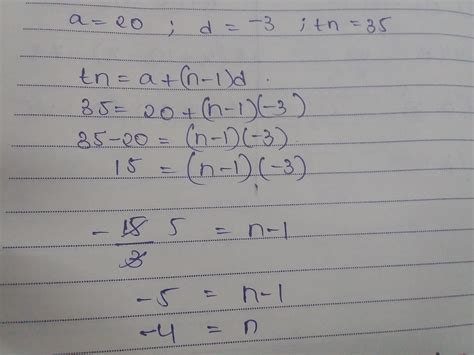 a=20 ; d=-3 ; tn=35
tn=a+(n-1)d.
35=20+(n-1)(-3)
35-20=(n-1)(-3)
15=(n-1)(-3)
-15/3 5 = n-1
-5 = n-1
-4 = n